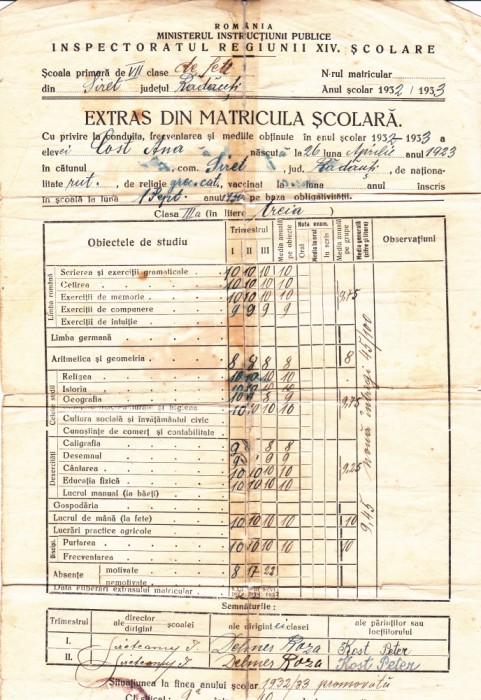 ROMÂNIA
MINISTERUL INSTRUCȚIUNII PUBLICE
INSPECTORATUL REGIUNII XIV. ȘCOLARE
Școala primară de VII clase de fete
din Siret județul Rădăuți
N-rul matricular
Anul școlar 1932/1933
EXTRAS DIN MATRICULA ȘCOLARĂ.
Cu privire la conduita, frecventarea și mediile obținute în anul școlar 1932-1933 a
elevei Cost Ana născută la 26 luna Aprilie anul 1923
în cătunul , com. Siret , jud. Rădăuți , de naționa-
litate rut. , de religie gr. cat. , vaccinat la luna anul înscris
în școală la luna 1 Sept. anul 1930 pe baza obligativității.
Clasa IIIa (în litere treia )
Obiectele de studiu Trimestrul I II III Media anuală pe obiecte Nota exam. Oral În scris Media anuală pe grupe Observațiuni
Limba română
Scrierea și exerciții gramaticale 10 10 10 10
Cetirea 10 10 10 10
Exerciții de memorie 10 10 10 10 9,75
Exerciții de compunere 9 9 9 9
Exerciții de intuiție
Limba germană
Aritmetica și geometria 8 8 8 8 8
Religea 10 10 10 10
Istoria 10 10 10 10
Geografia 10 9 8 9 9,75
10 10 10 10
Cultura socială și învățământul civic
Cunoștințe de comerț și contabilitate
Dexterități
Caligrafia 9 8 8
Desemnul 9 9 9
Cântarea 10 10 10 10 9,25
Educația fizică 10 10 10 10
Lucrul manual (la băeți)
Gospodăria
Lucrul de mână (la fete) 10 10 10 10 10
Lucrări practice agricole
Purtarea 10 10 10 10 10
Frecventarea
Absențe motivate 8 17 22
nemotivate
Data eliberării extrasului matricular
9,45 nouă întregi 45/100
Semnăturile:
Trimestrul director ale școalei diriginte ale dirigintei clasei ale părinților sau locțiitorului
I. Delmer Roza Kost Peter
II. Delmer Roza Kost Peter
Situațiunea la finea anului școlar 1932/33 promovată